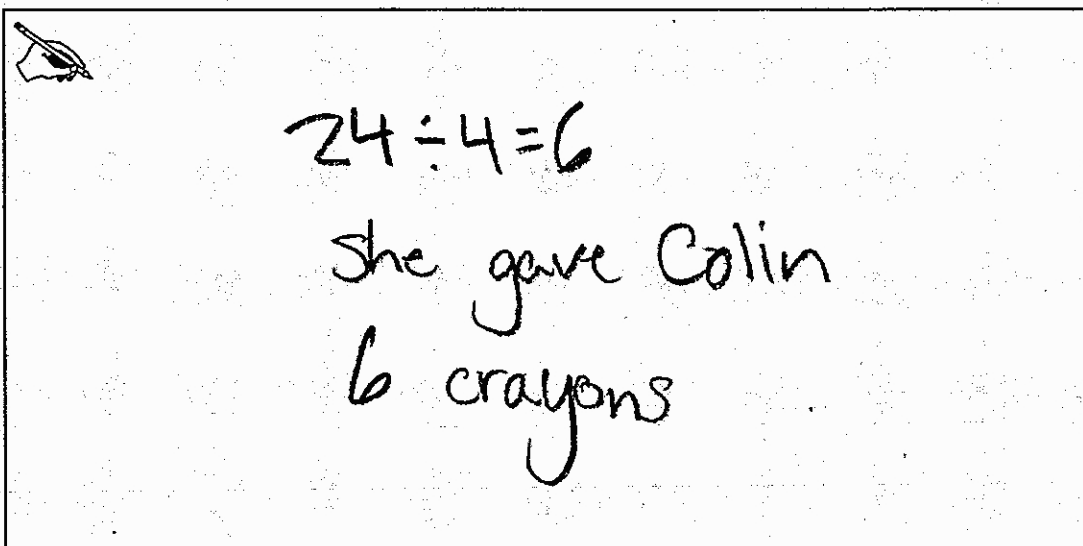 24÷4=6
She gave Colin
6 crayons